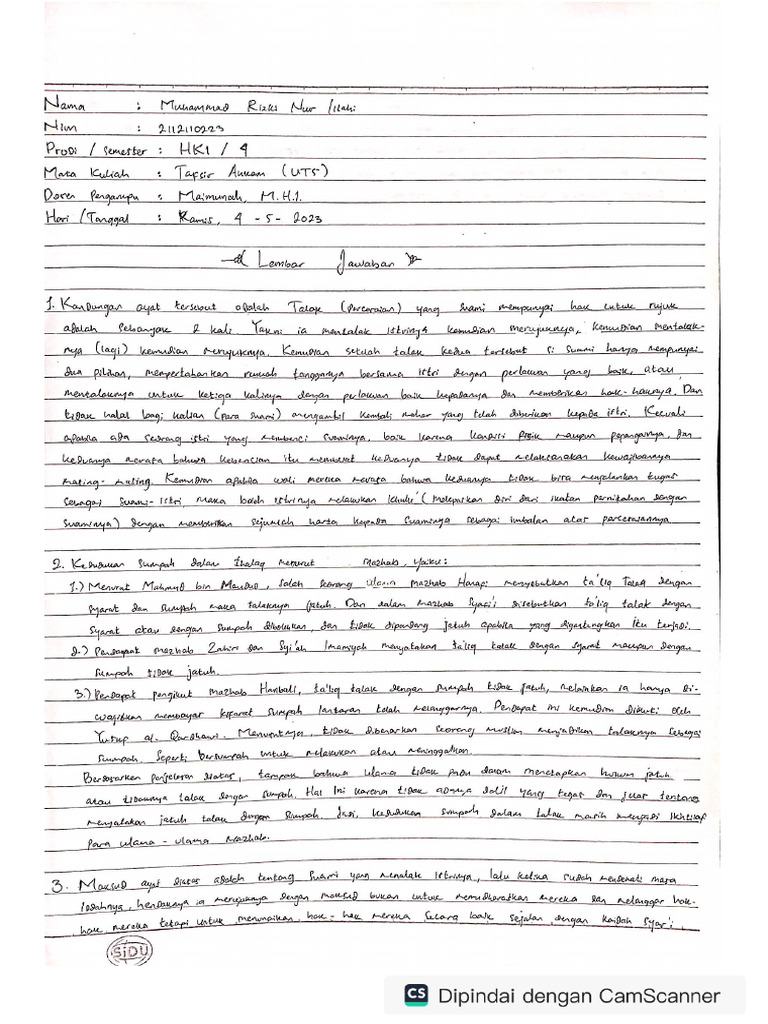 Nama : Muhammad Rizki Nur Ilahi
Nim : 2112110223
Prodi / Semester : HKI / 4
Mata Kuliah : Tafsir Ahkam (UTS)
Dosen Pengampu : Maimunah, M.H.I.
Hari / Tanggal : Kamis, 4 - 5 - 2023
Lembar Jawaban
1. Kandungan ayat tersebut adalah Talak (Perceraian) yang suami mempunyai hak untuk rujuk
adalah sebanyak 2 kali. Yakni ia mentalak istrinya kemudian merujuknya, kemudian mentalak-
nya (lagi) kemudian merujuknya. Kemudian setelah talak kedua tersebut si suami hanya mempunyai
dua pilihan, mempertahankan rumah tangganya bersama istri dengan perlakuan yang baik, atau
mentalaknya untuk ketiga kalinya dengan perlakuan baik kepadanya dan memberikan hak-haknya. Dan
tidak halal bagi kalian (para suami) mengambil kembali mahar yang telah diberikan kepada istri. Kecuali
apabila ada seorang istri yang membenci suaminya, baik karena kondisi fisik maupun perangainya, dan
keduanya merasa bahwa kebencian itu membuat keduanya tidak dapat melaksanakan kewajibannya
masing-masing. Kemudian apabila wali mereka merasa bahwa keduanya tidak bisa menjalankan tugas
sebagai suami-istri, maka boleh istrinya melakukan khulu' (melepaskan diri dari ikatan pernikahan dengan
suaminya) dengan memberikan sejumlah harta kepada suaminya sebagai imbalan atas perceraiannya
2. Kedudukan sumpah dalam Thalaq menurut mazhab, yaitu:
1.) Menurut Mahmud bin Mas'ud, salah seorang ulama mazhab Hanafi menyebutkan ta'liq Talaq dengan
syarat dan sumpah maka talaknya jatuh. Dan dalam mazhab Syafi'i disebutkan ta'liq talak dengan
syarat atau dengan sumpah dibolehkan, dan tidak dipandang jatuh apabila yang digantungkan itu terjadi.
2.) Pendapat mazhab Zahiri dan Syi'ah Imamiyah menyatakan ta'liq talak dengan syarat maupun dengan
sumpah tidak jatuh.
3.) Pendapat pengikut mazhab Hanbali, ta'liq talak dengan sumpah tidak jatuh, melainkan ia hanya di-
wajibkan membayar kifarat sumpah lantaran telah melanggarnya. Pendapat ini kemudian diikuti oleh
Yusuf al-Qardhawi. Menurutnya, tidak dibenarkan seorang muslim menjadikan talaknya sebagai
sumpah. Seperti bersumpah untuk melakukan atau meninggalkan.
Berdasarkan penjelasan diatas, tampak bahwa ulama tidak padu dalam menetapkan hukum jatuh
atau tidaknya talak dengan sumpah. Hal ini karena tidak adanya dalil yang tegas dan jelas tentang
menyatakan jatuh talak dengan sumpah. Jadi, kedudukan sumpah dalam talak masih menjadi ikhtilaf
para ulama-ulama mazhab.
3. Maksud ayat diatas adalah tentang suami yang mentalak istrinya, lalu ketika sudah mendekati masa
iddahnya, hendaknya ia merujuknya dengan maksud bukan untuk memudharatkan mereka dan melanggar hak-
hak mereka tetapi untuk menunaikan hak-hak mereka secara baik sejalan dengan kaidah syar'i
SiDU
CS Dipindai dengan CamScanner